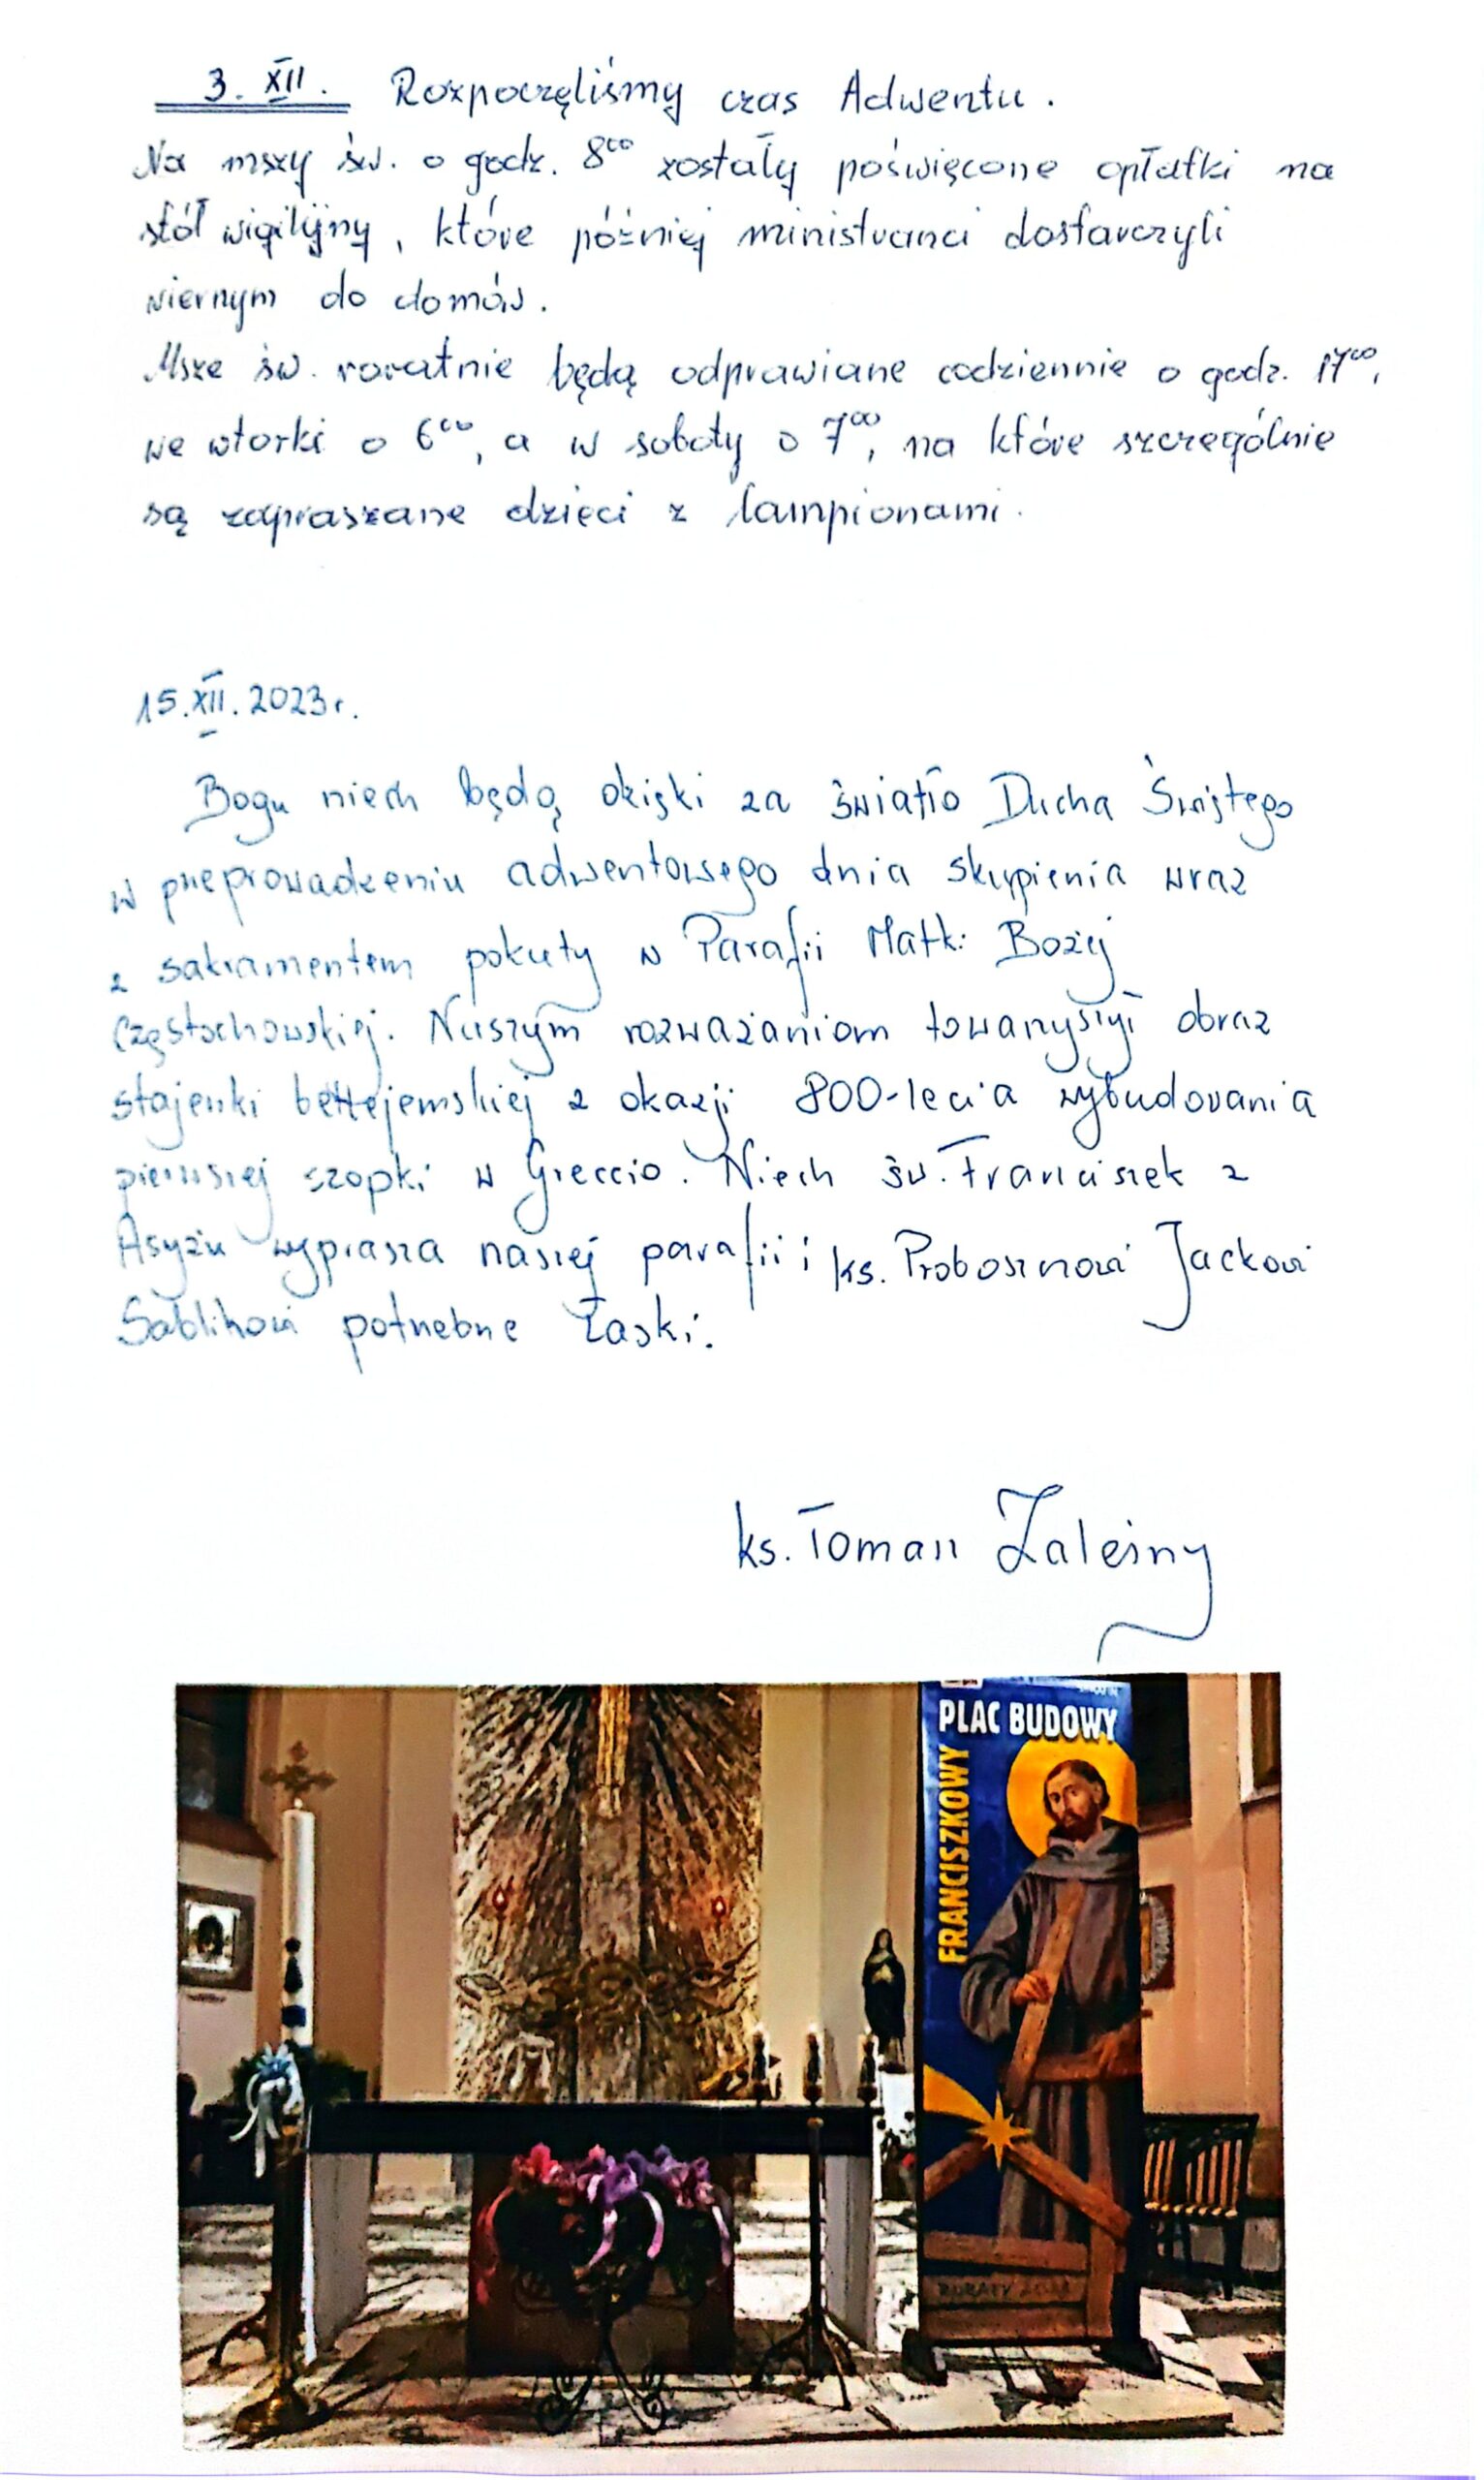 3. XII. Rozpoczęliśmy czas Adwentu.
Na mszy św. o godz. 8⁰⁰ zostały poświęcone opłatki na
stół wigilijny, które później ministranci dostarczyli
wiernym do domów.
Msze św. roratnie będą odprawiane codziennie o godz. 17⁰⁰,
we wtorki o 6⁰⁰, a w soboty o 7⁰⁰, na które szczególnie
są zapraszane dzieci z lampionami.
15.XII.2023r.
Bogu niech będą dzięki za światło Ducha Świętego
w przeprowadzeniu adwentowego dnia skupienia wraz
z sakramentem pokuty w Parafii Matki Bożej
Częstochowskiej. Naszym rozważaniom towarzyszył obraz
stajenki betlejemskiej z okazji 800-lecia wybudowania
pierwszej szopki w Greccio. Niech św. Franciszek z
Asyżu wyprasza naszej parafii i ks. Proboszczowi Jackowi
Sablikowi potrzebne łaski.
ks. Tomasz Zaleśny
PLAC BUDOWY
FRANCISZKOWY
RORATY